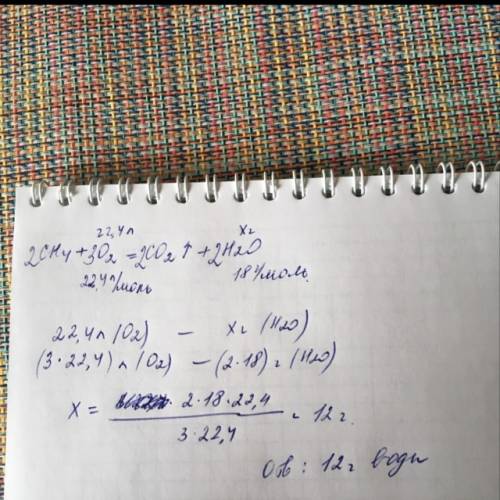 22,4л хг
2CH4 + 3O2 = 2CO2 ↑ + 2H2O
22,4 л/моль 18 г/моль
22,4 л (O2) — хг (H2O)
(3·22,4) л (O2) — (2·18) г (H2O)
x = 2·18·22,4 / 3·22,4 = 12 г.
Отв: 12 г води